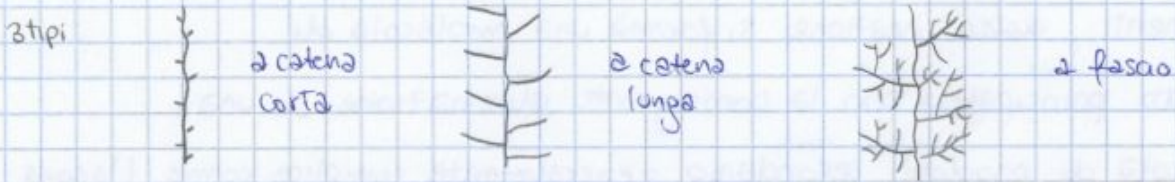 3 tipi
a catena
corta
a catena
lunga
a fascio